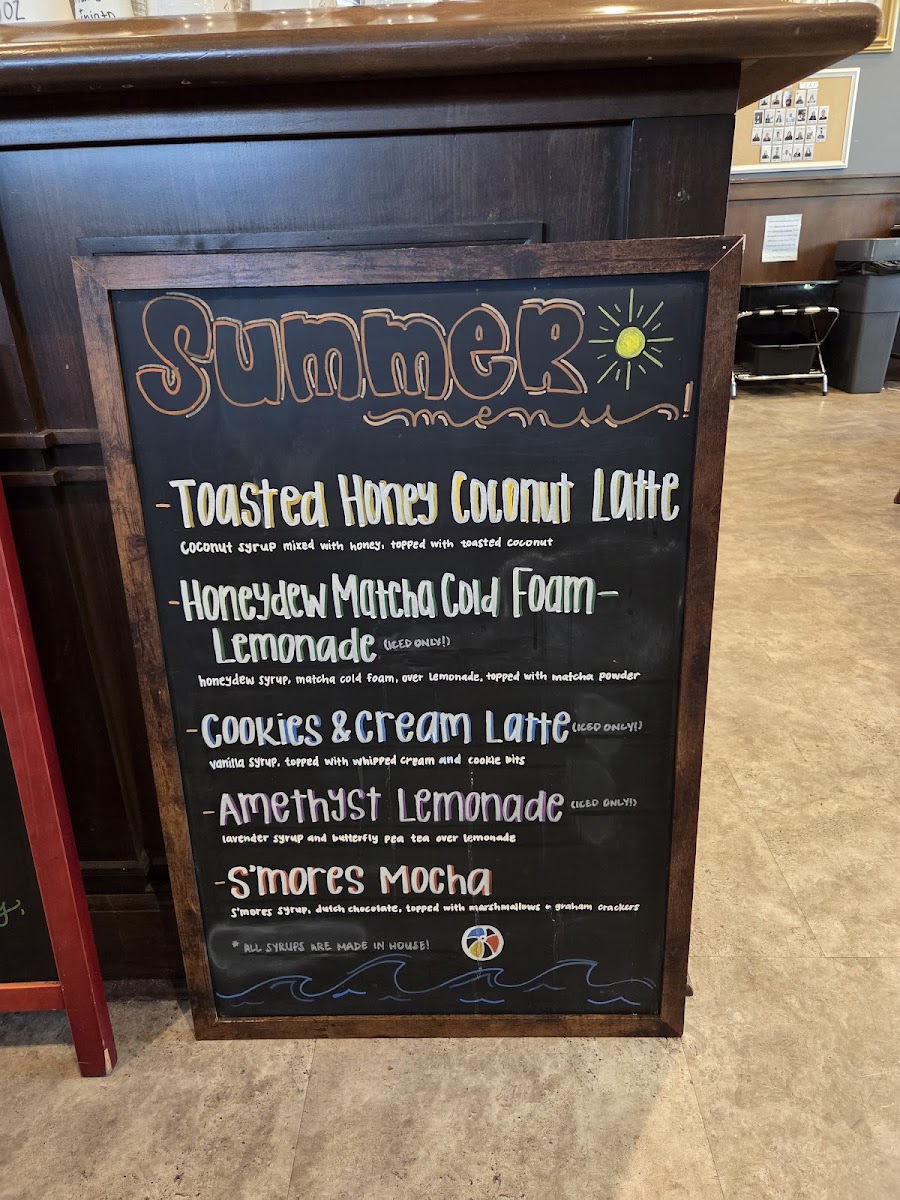 OZ
Summer
menu!
-Toasted Honey Coconut Latte
coconut syrup mixed with honey, topped with toasted coconut
-Honeydew Matcha Cold Foam-
Lemonade (ICED ONLY!)
honeydew syrup, matcha cold foam, over lemonade, topped with matcha powder
-Cookies & Cream Latte (ICED ONLY!)
vanilla syrup, topped with whipped cream and cookie bits
-Amethyst Lemonade (ICED ONLY!)
lavender syrup and butterfly pea tea over lemonade
-S'mores Mocha
s'mores syrup, dutch chocolate, topped with marshmallows + graham crackers
* ALL SYRUPS ARE MADE IN HOUSE!